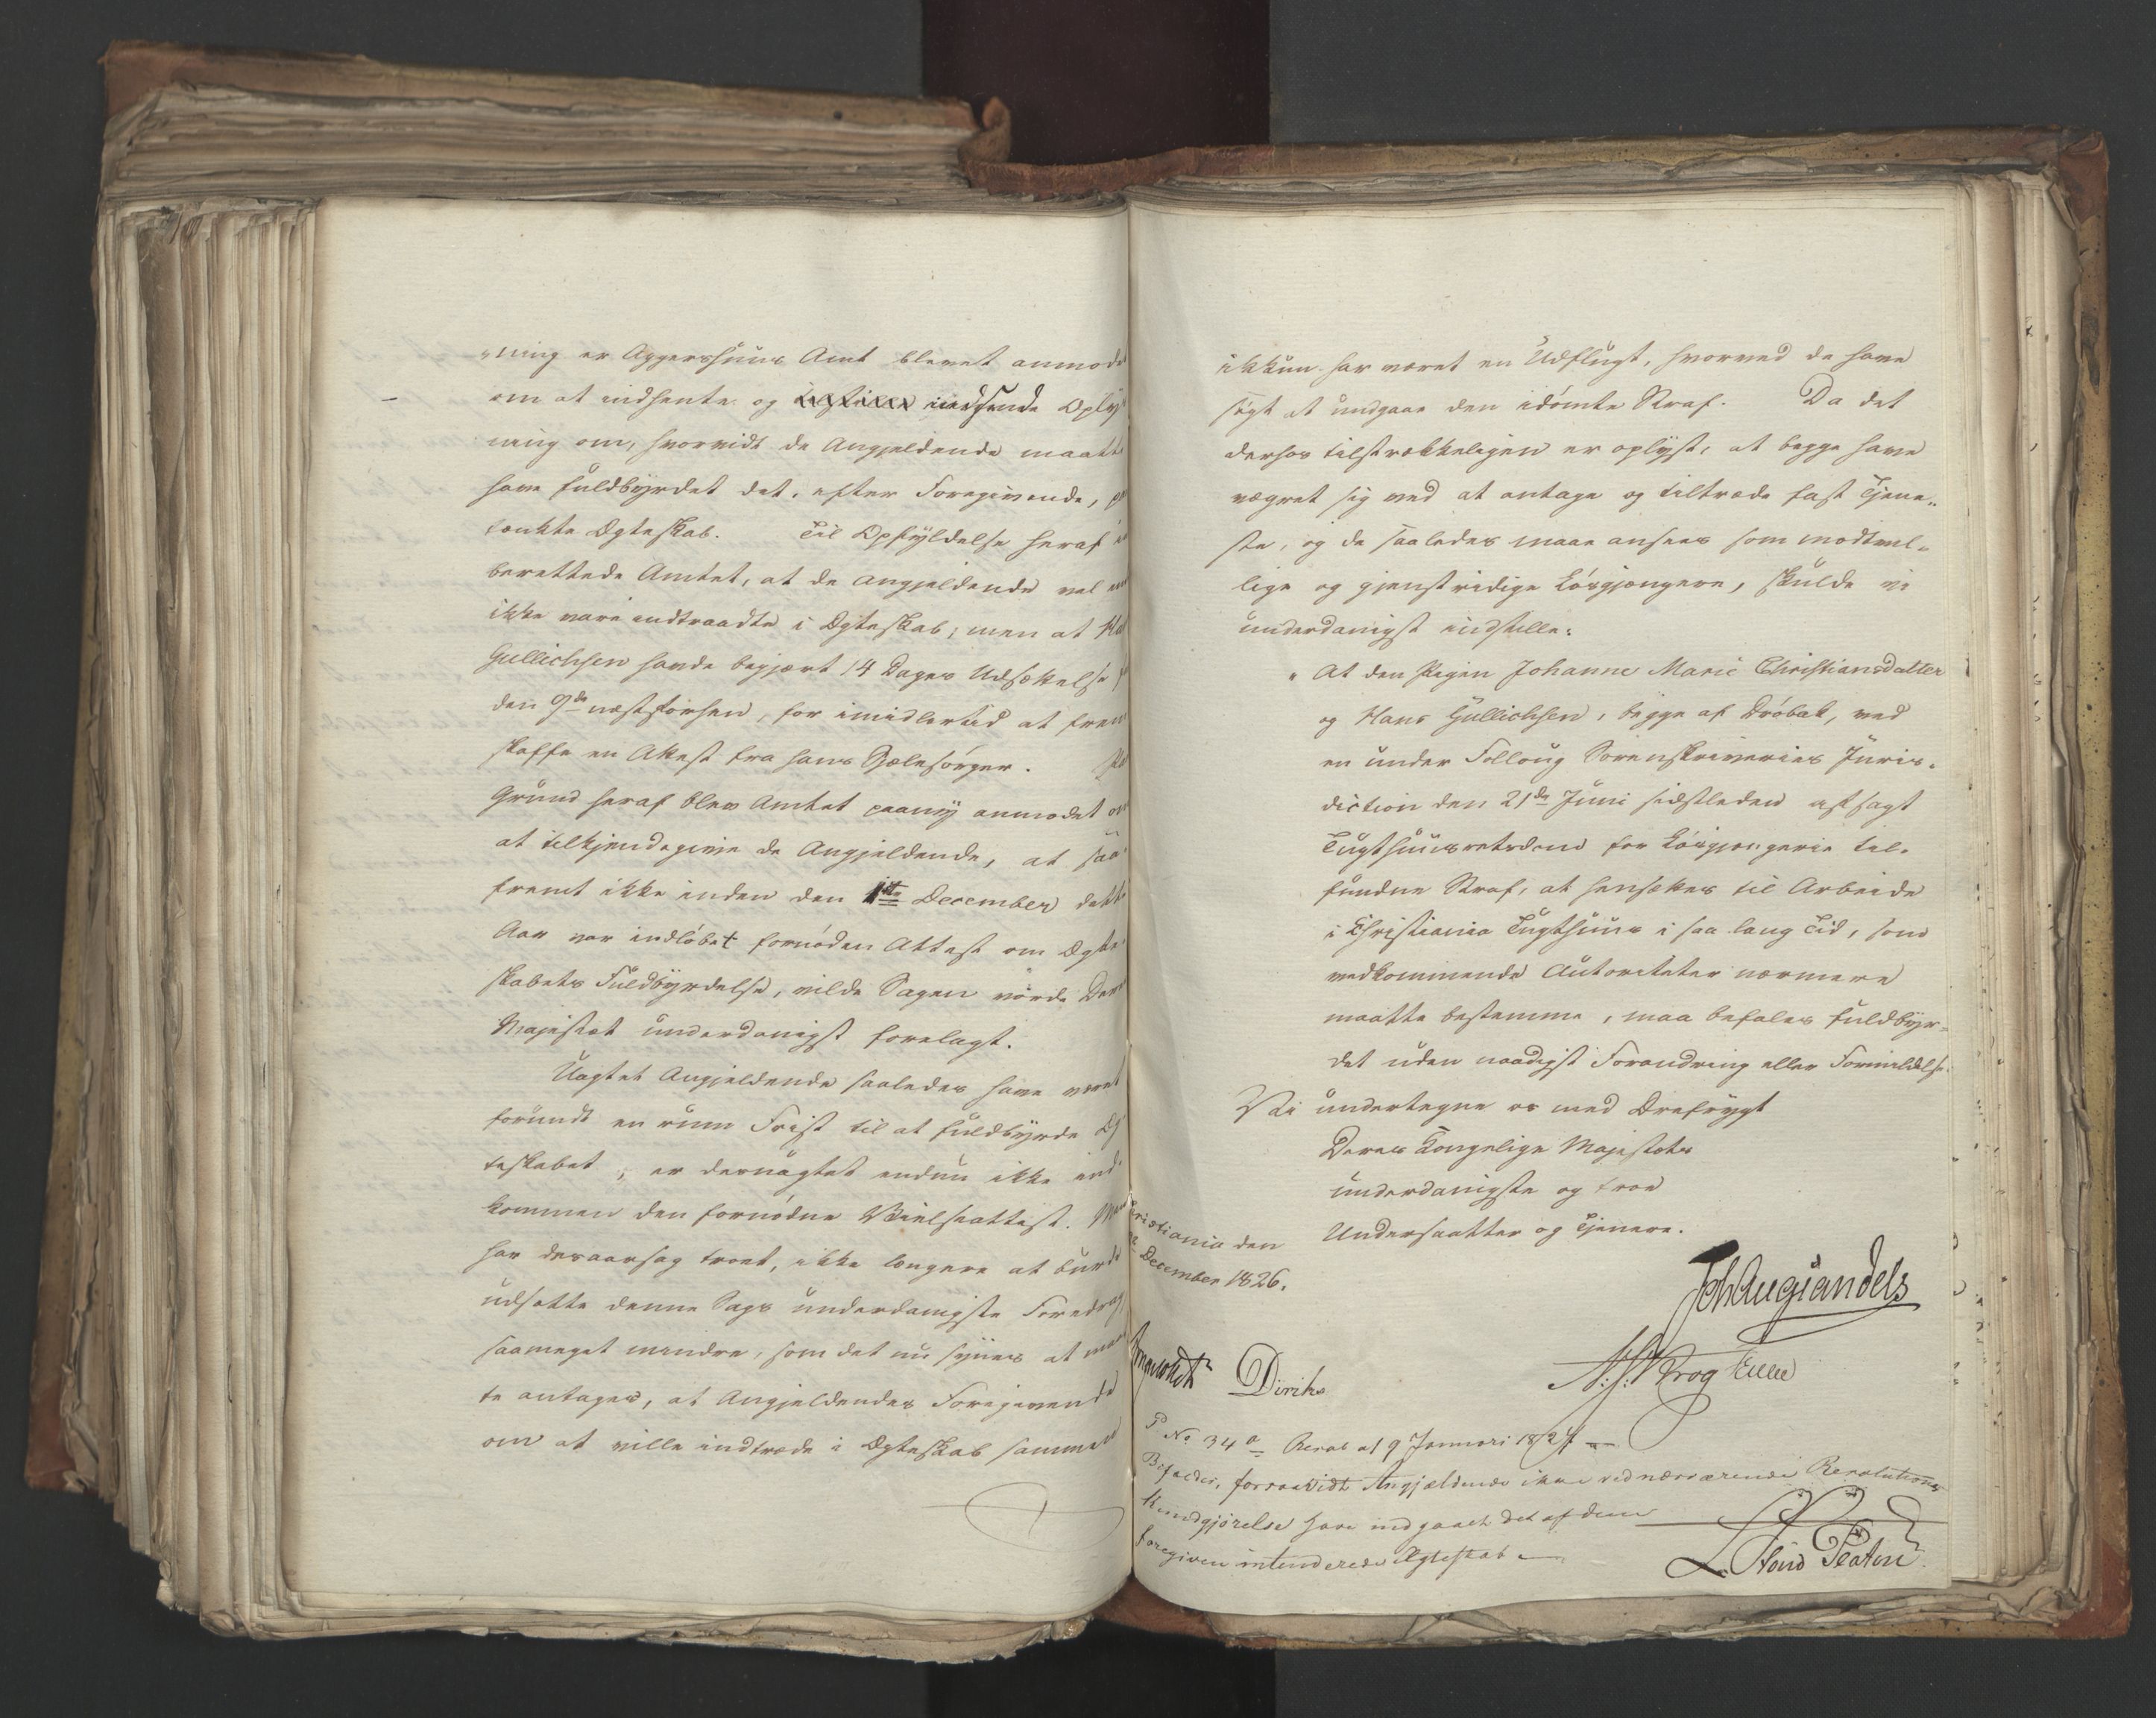 „ning er Aggershuus Amt blevet anmodet
om at indhente og indsende Oplys
ning om, hvorvidt de Angjeldende maatte
have fuldbyrdet det, efter Foregivende, 
tænkte Ægteskab. Til Opfyldelse heraf
berettede Amtet, at de Angjeldende vel
ikke vare indtraadte i Ægteskab, men at
Gullichsen havde begjært 14 Dages Udsættelse
den 9de næstforhen, for imidlertid at frem
skaffe en Attest fra hans Sjælesørger. Paa
Grund heraf blev Amtet paany anmodet om
at tilkjendegive de Angjeldende, at saa
fremt ikke inden den 1ste December dette
Aar var indløbet fornøden Attest om Ægte-
skabets Fuldbyrdelse, vilde Sagen vorde Deres
Majestæt underdanigst forelagt.
Uagtet Angjeldende saaledes have været
forundt en rum Frist til at fuldbyrde Æg
teskabet, er desuagtet endnu ikke ind-
kommen den fornødne Vielseattest. Man
har desaarsag troet, ikke længere at burde
udsætte denne Sags underdanigste Foredrag,
saameget mindre, som det nu synes at maat
te antages, at Angjeldendes Foregivende
om at ville indtræde i Ægteskab sammen
ikkun har været en Udflugt, hvorved de have
søgt at undgaae den idømte Straf. Da det
derhos tilstrækkeligen er oplyst, at begge have
vægret sig ved at antage og tiltræde fast Tjene„
ste, og de saaledes maae ansees som modtvil-
lige og gjenstridige Løsgjængere, skulde vi
underdanigst indstille:
„At den Pigen Johanne Marie Christiansdatter
og Hans Gullichsen, begge af Drøbak, ved
en under Folloug Sorenskriveries Juris-
diction den 21de Juni sidstleden afsagt
Tugthuusretsdom for Løsgjængerie til-
fundne Straf, at hensættes til Arbeide
i Christiania Tugthuus i saa lang Tid, som
vedkommende Autoriteter nærmere
maatte bestemme, maa befales fuldbyr-
det uden naadigst Forandring eller Formildelse.
Vi undertegne os med Ærefrygt
Deres Kongelige Majestæts
underdanigste og troe
Undersaatter og Tjenere.
Christiania den
December 1826.
Joh Aug Sandels
Diriks
P No 34 a Resol af 9 Januari 1827
Befales, forsaavidt Angjældende ikke ved nærværende Resolutions
Kundgjørelse have indgaaet det af dem
foregiven intenderede Ægteskab